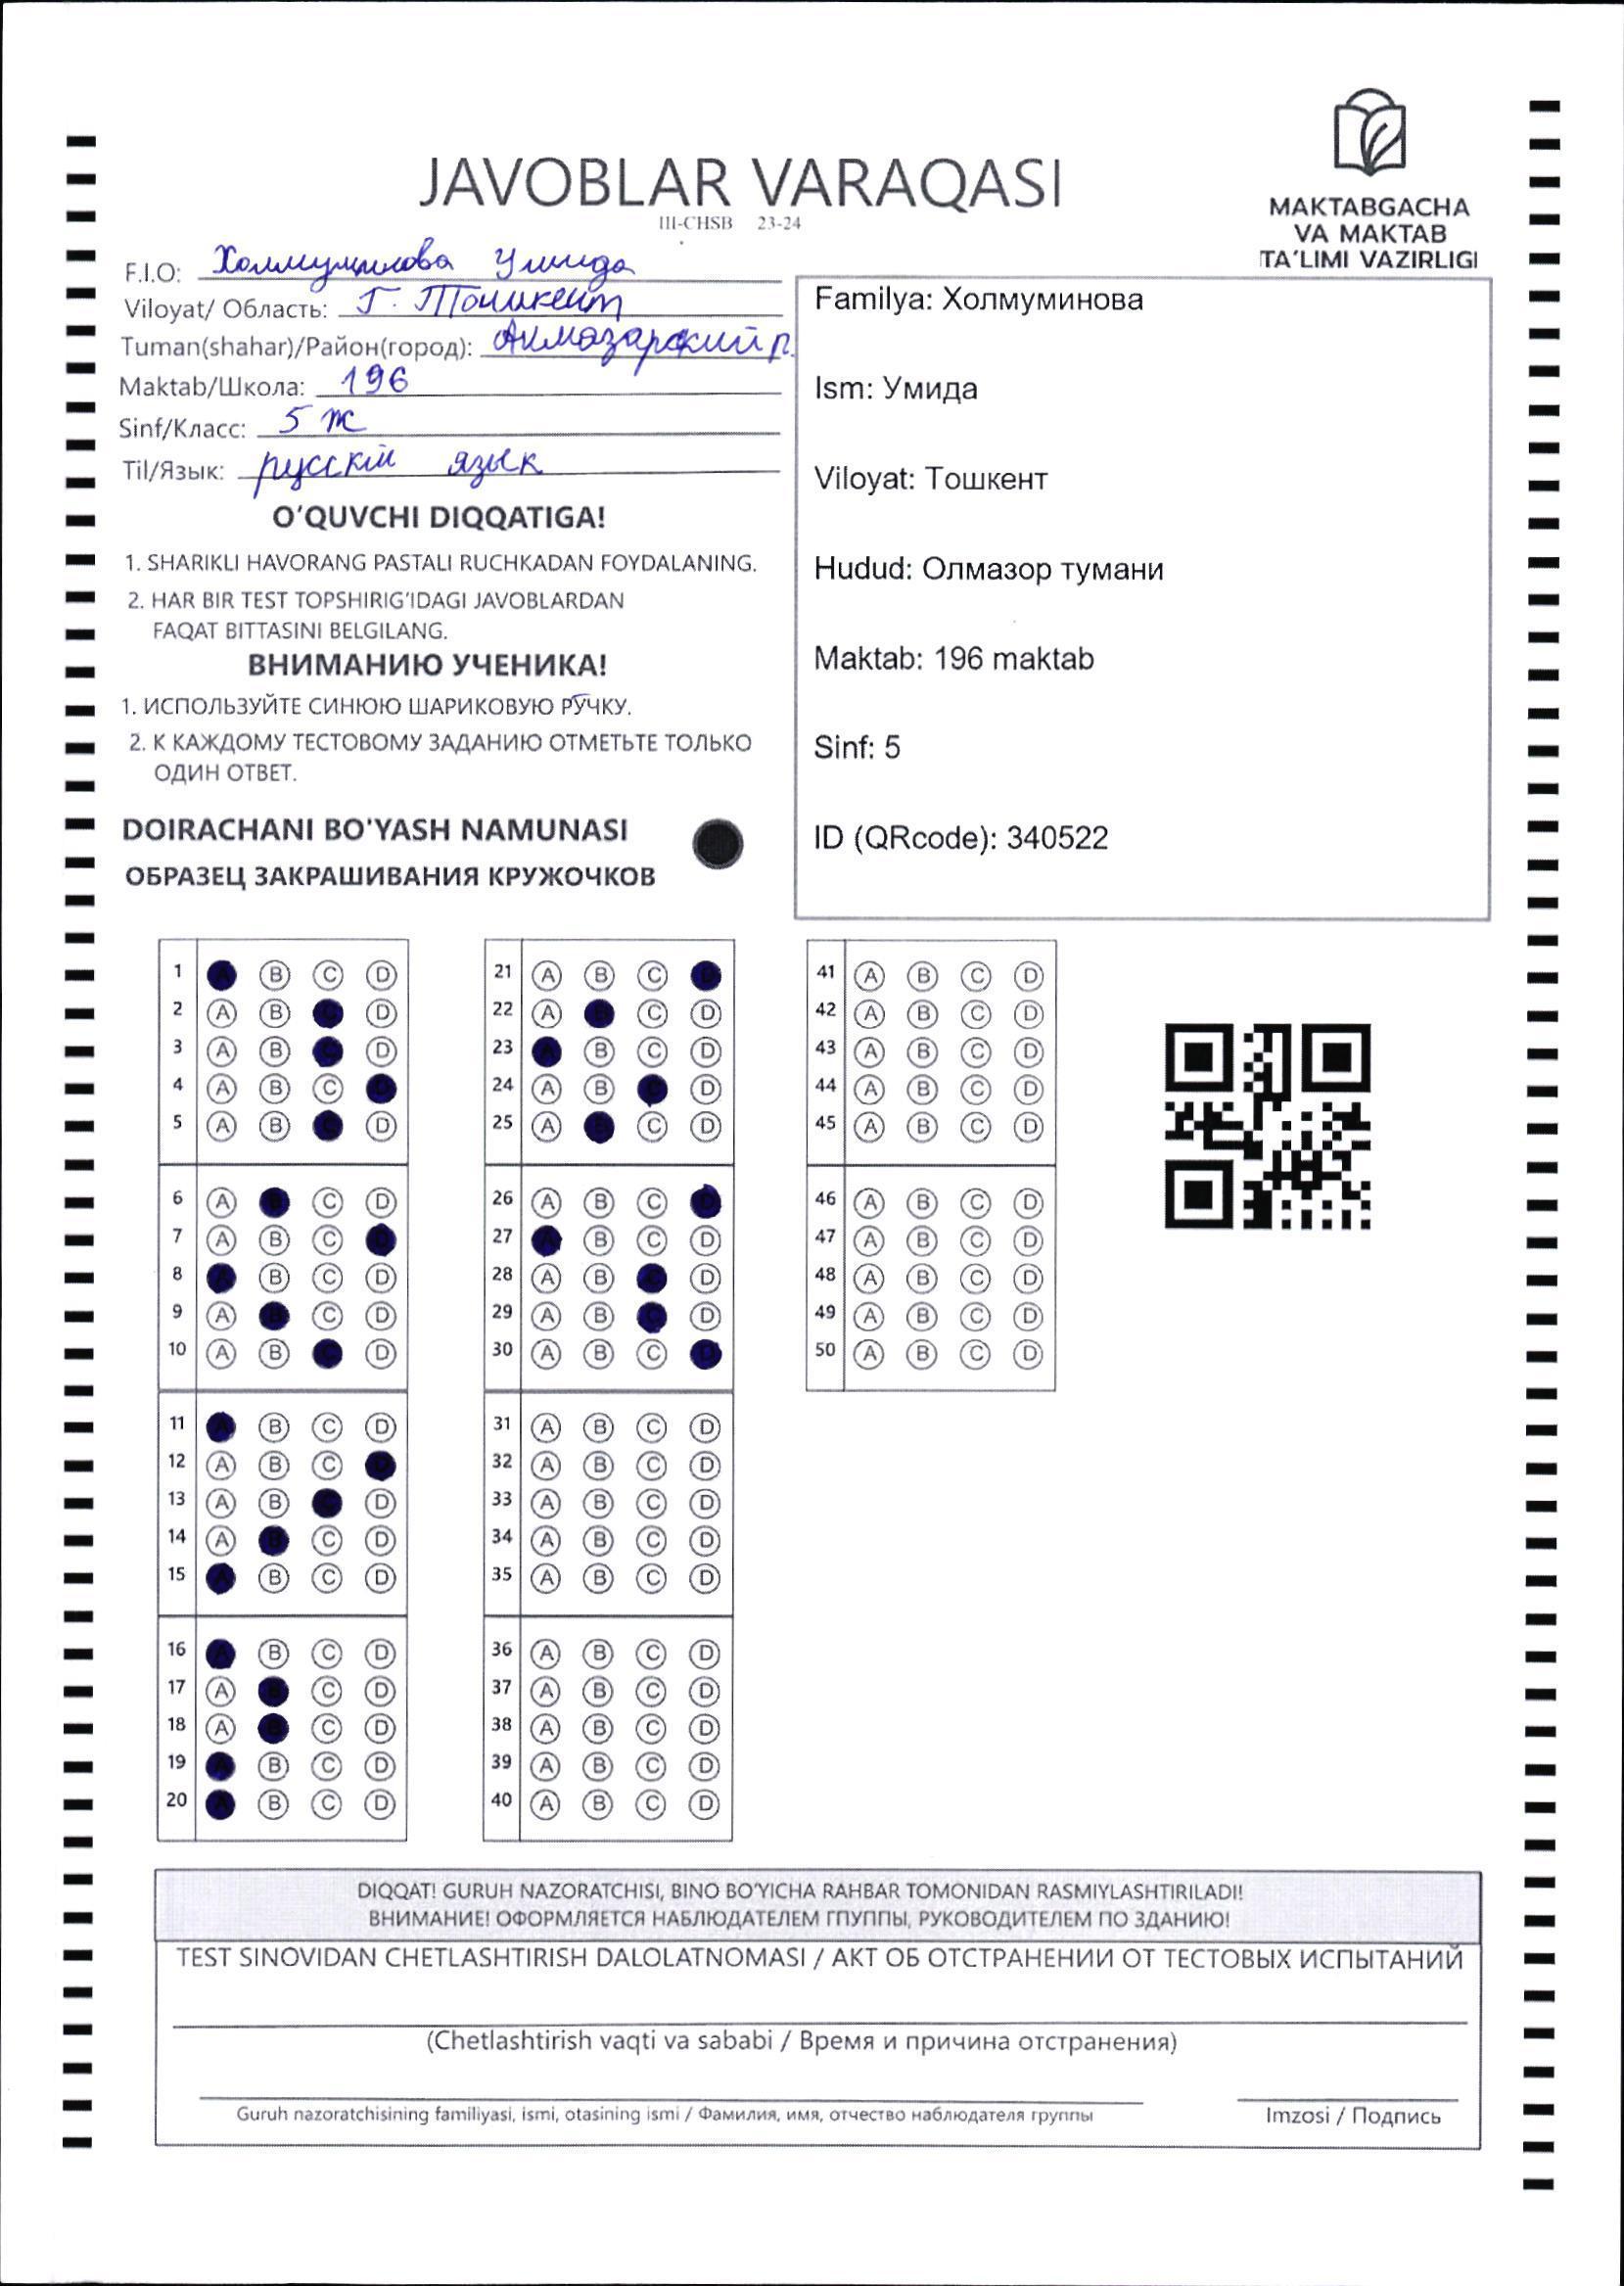 JAVOBLAR VARAQASI
III-CHSB 23-24
MAKTABGACHA
VA MAKTAB
TA'LIMI VAZIRLIGI
F.I.O: Холмуминова Умида
Viloyat/ Область: Г. Тошкент
Tuman(shahar)/Район(город): Алмазарский р.
Maktab/Школа: 196
Sinf/Класс: 5 Ж
Til/Язык: русскій язык
O'QUVCHI DIQQATIGA!
1. SHARIKLI HAVORANG PASTALI RUCHKADAN FOYDALANING.
2. HAR BIR TEST TOPSHIRIG'IDAGI JAVOBLARDAN
FAQAT BITTASINI BELGILANG.
ВНИМАНИЮ УЧЕНИКА!
1. ИСПОЛЬЗУЙТЕ СИНЮЮ ШАРИКОВУЮ РУЧКУ.
2. К КАЖДОМУ ТЕСТОВОМУ ЗАДАНИЮ ОТМЕТЬТЕ ТОЛЬКО
ОДИН ОТВЕТ.
DOIRACHANI BO'YASH NAMUNASI
ОБРАЗЕЦ ЗАКРАШИВАНИЯ КРУЖОЧКОВ
Familya: Холмуминова
Ism: Умида
Viloyat: Тошкент
Hudud: Олмазор тумани
Maktab: 196 maktab
Sinf: 5
ID (QRcode): 340522
1 A B C D
2 A B C D
3 A B C D
4 A B C D
5 A B C D
6 A B C D
7 A B C D
8 A B C D
9 A B C D
10 A B C D
11 A B C D
12 A B C D
13 A B C D
14 A B C D
15 A B C D
16 A B C D
17 A B C D
18 A B C D
19 A B C D
20 A B C D
21 A B C D
22 A B C D
23 A B C D
24 A B C D
25 A B C D
26 A B C D
27 A B C D
28 A B C D
29 A B C D
30 A B C D
31 A B C D
32 A B C D
33 A B C D
34 A B C D
35 A B C D
36 A B C D
37 A B C D
38 A B C D
39 A B C D
40 A B C D
41 A B C D
42 A B C D
43 A B C D
44 A B C D
45 A B C D
46 A B C D
47 A B C D
48 A B C D
49 A B C D
50 A B C D
DIQQAT! GURUH NAZORATCHISI, BINO BO'YICHA RAHBAR TOMONIDAN RASMIYLASHTIRILADI!
ВНИМАНИЕ! ОФОРМЛЯЕТСЯ НАБЛЮДАТЕЛЕМ ГПУППЫ, РУКОВОДИТЕЛЕМ ПО ЗДАНИЮ!
TEST SINOVIDAN CHETLASHTIRISH DALOLATNOMASI / АКТ ОБ ОТСТРАНЕНИИ ОТ ТЕСТОВЫХ ИСПЫТАНИЙ
(Chetlashtirish vaqti va sababi / Время и причина отстранения)
Guruh nazoratchisining familiyasi, ismi, otasining ismi / Фамилия, имя, отчество наблюдателя группы
Imzosi / Подпись